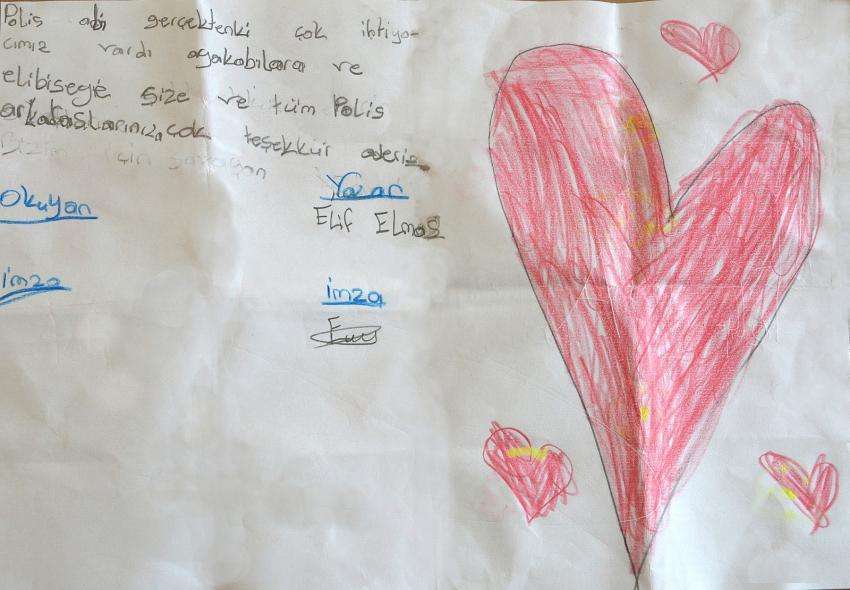 Polis abi gerçektenki çok ihtiya-
cımız vardı ayakabılara ve
elibiseye size ve tüm Polis
arkadaşlarınıza çok teşekkür ederiz
Bizim için
Okuyan
Yazan
Elif Elmas
imza
imza